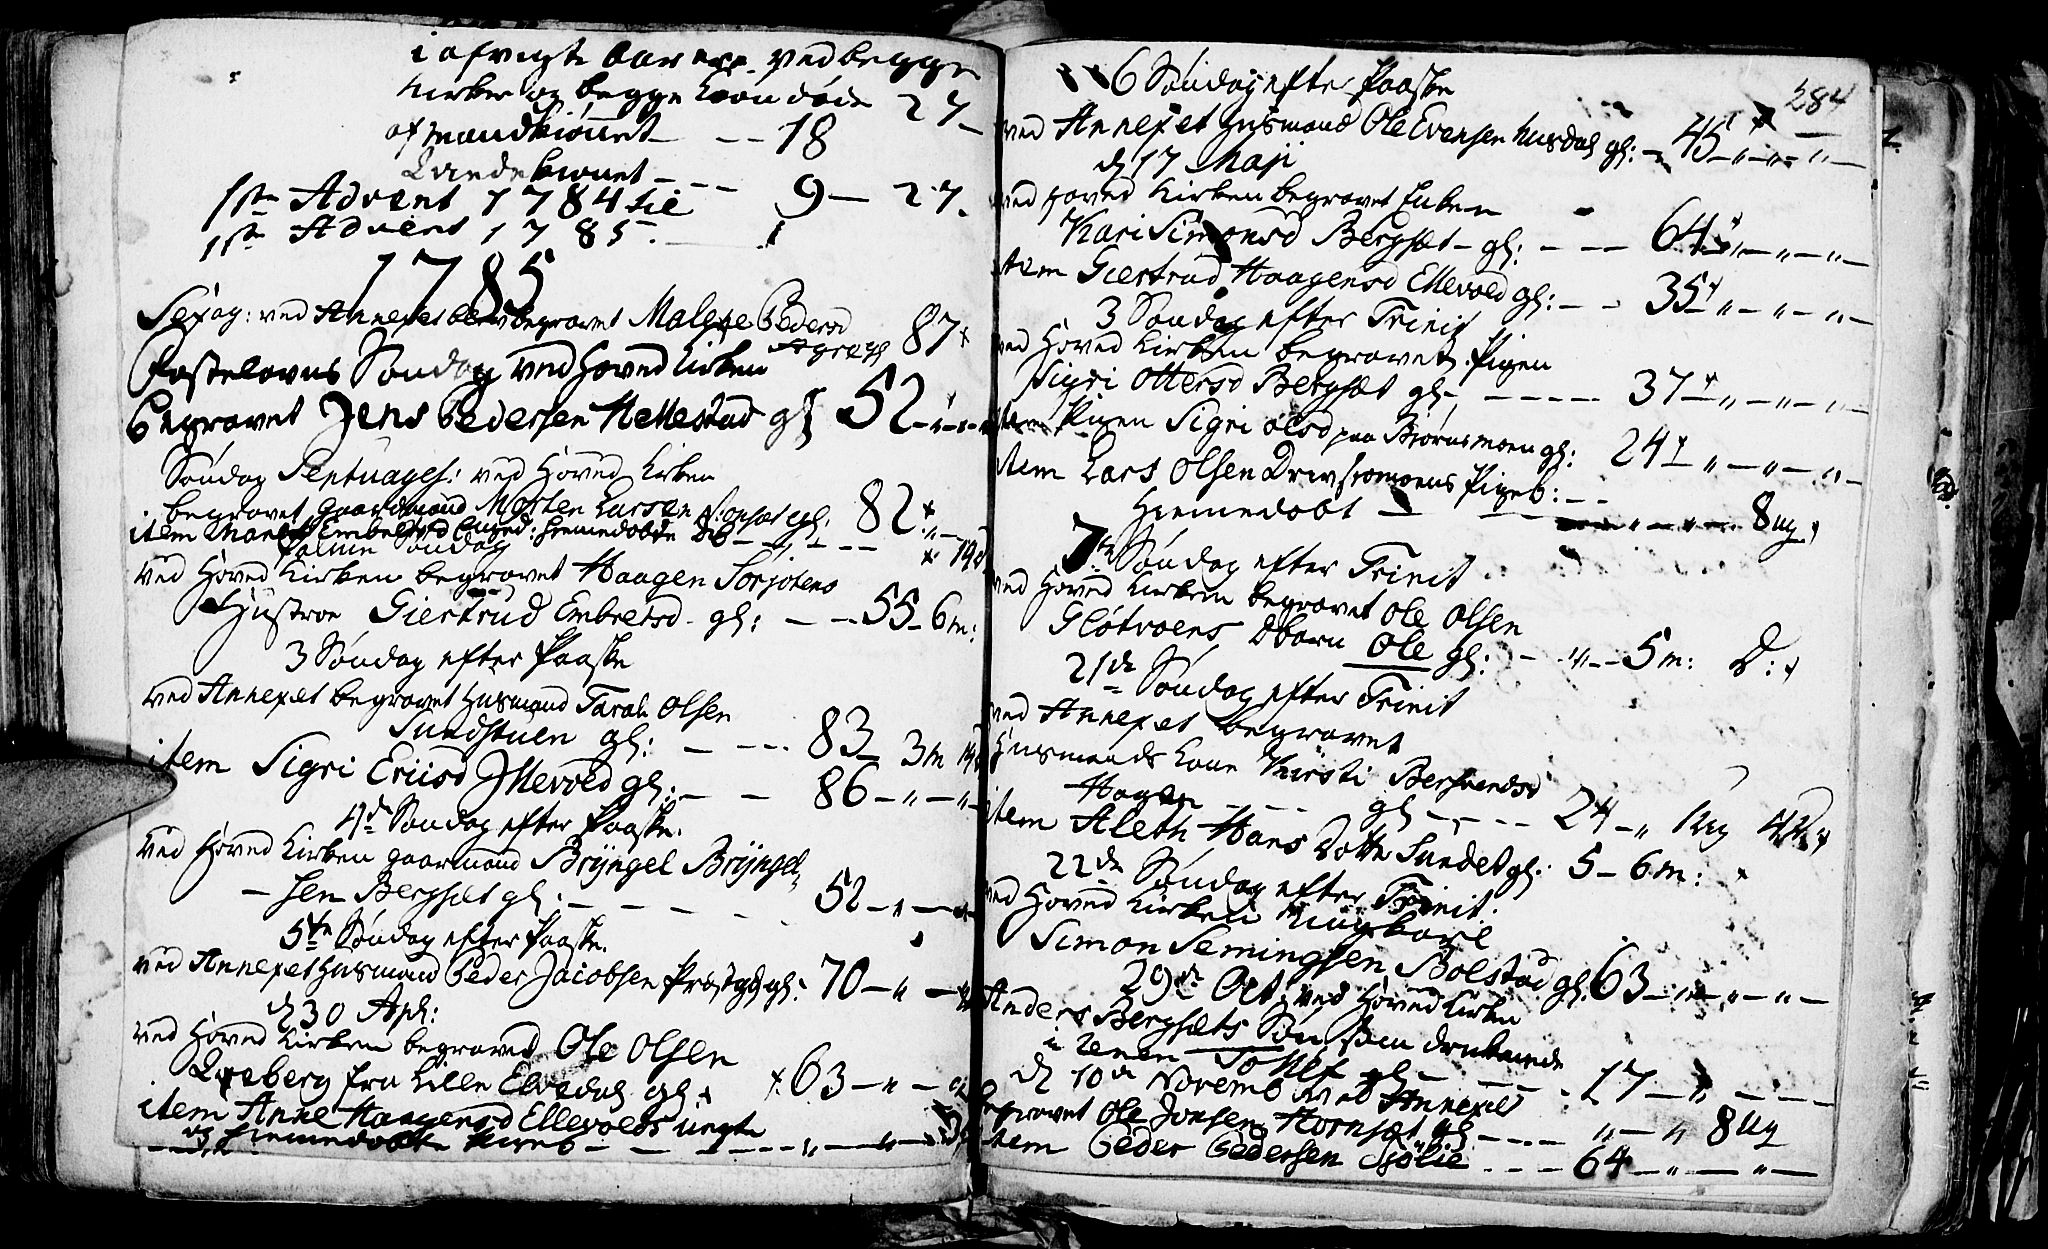 i afvigte Aar ere ved begge
kirker og begge kiøn døde 27
af mandkiønnet - - 18
Qvindekiønnet - - - 9 - 27.
1ste Advent 1784 til
1ste Advent 1785.
1785
Sexag: ved Annexet blev begravet Malene Peders
87
Fastelavns Søndag ved Hoved Kirken
Begravet Jens Pedersen Hellestad gl 52 - " -
Søndag Septuages: ved Hoved Kirken
begravet gaardmand Morten Larsen gl: 82
item hiemedøbte
Palme Søndag
ved Hoved Kirken begravet Haagen
Hustroe Giertrud Embretsd - gl: - - 55 - 6 m:
3 Søndag efter Paaske
ved Annexet begravet Husmand Tarald Olsen
Sundstuen gl: - - - - 83 3 m
item Sigri Eriisd Ellevold gl: - - 86 - " - "
4de Søndag efter Paaske.
ved Hoved Kirken gaarmand Brÿngel Brÿngel-
- sen Bergsæt gl: - - - - - 52 - " -
5te Søndag efter Paaske.
ved Annexet Husmand Peder Jacobsen Præstgd gl: 70 - " - "
d 30 Apl:
ved Hoved Kirken begraved Ole Olsen
fra Lille Elvedal gl: 63 - " -
item Anne Haagensd Ellevolds
hiemedøbte
284
6 Søndag efter Paaske
ved Annexet Husmand Ole Evensen Husdal gl: - 45 - " - " - " -
d 17 Maji
ved Hoved Kirken begravet Enken
Kari Simonsd Bergsæt - gl: - - - 64 - " - " - " -
item Giertrud Haagensd Ellevold gl: - - 35 - " - " - " -
3 Søndag efter Trinit
ved Hoved Kirken begravet Pigen
Sigri Ottersd Bergsæt gl - - - - - - 37 - " - " - " -
item Pigen Sigri Olsd paa Biørnsmoen gl: 24 - " - " - " -
item Lars Olsen Drivstomoens Pigeb: - -
Hiemedøbt - 8 ug
7de Søndag efter Trinit
ved Hoved Kirken begravet Ole Olsen
Gløtvoens Dbarn Ole gl: - " - - 5 m: D:
21de Søndag efter Trinit
ved Annexet begravet
Husmands kone Kirsti
Hagen - - - gl - - - - 24 - "
item Aleth Hans Dotter Sundet gl: 5 - 6 m:
22de Søndag efter Trinit
ved Hoved Kirken Ungkarl
Simon Semingsen Bolstad gl: 63 - " - " - " -
29de Oct: ved Hoved Kirken
Anders Bergsæts Søn som druknede
i Tollef gl - - - 17 - " - - -
d 10de Novemb ved Annexet
begravet Ole Jonsen Hornset gl - - - - " - " 8 ug
item Peder Pedersen Siølie - - - 64 - " - " -